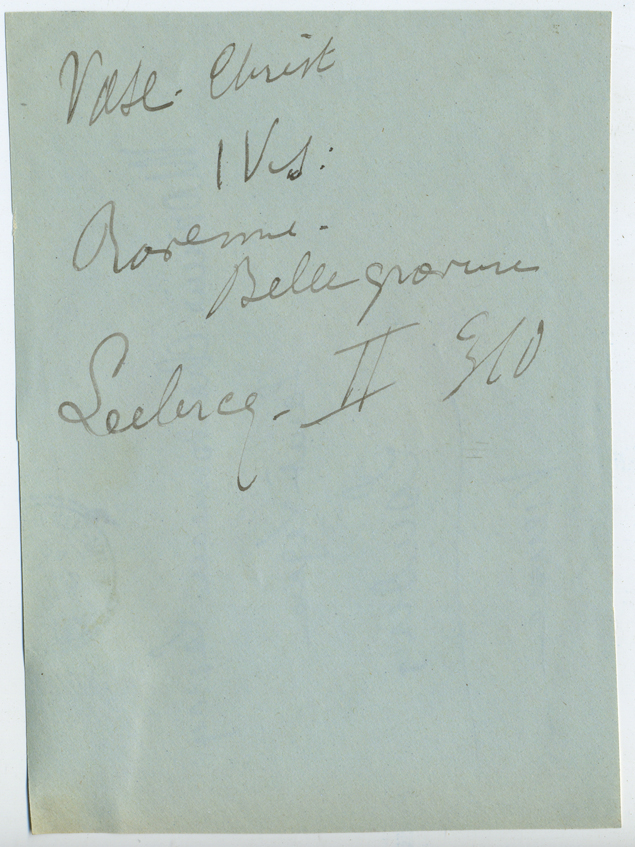 Vase. Christ
IV s:
Ravenne.
Belle gravure
Leclercq. II 310